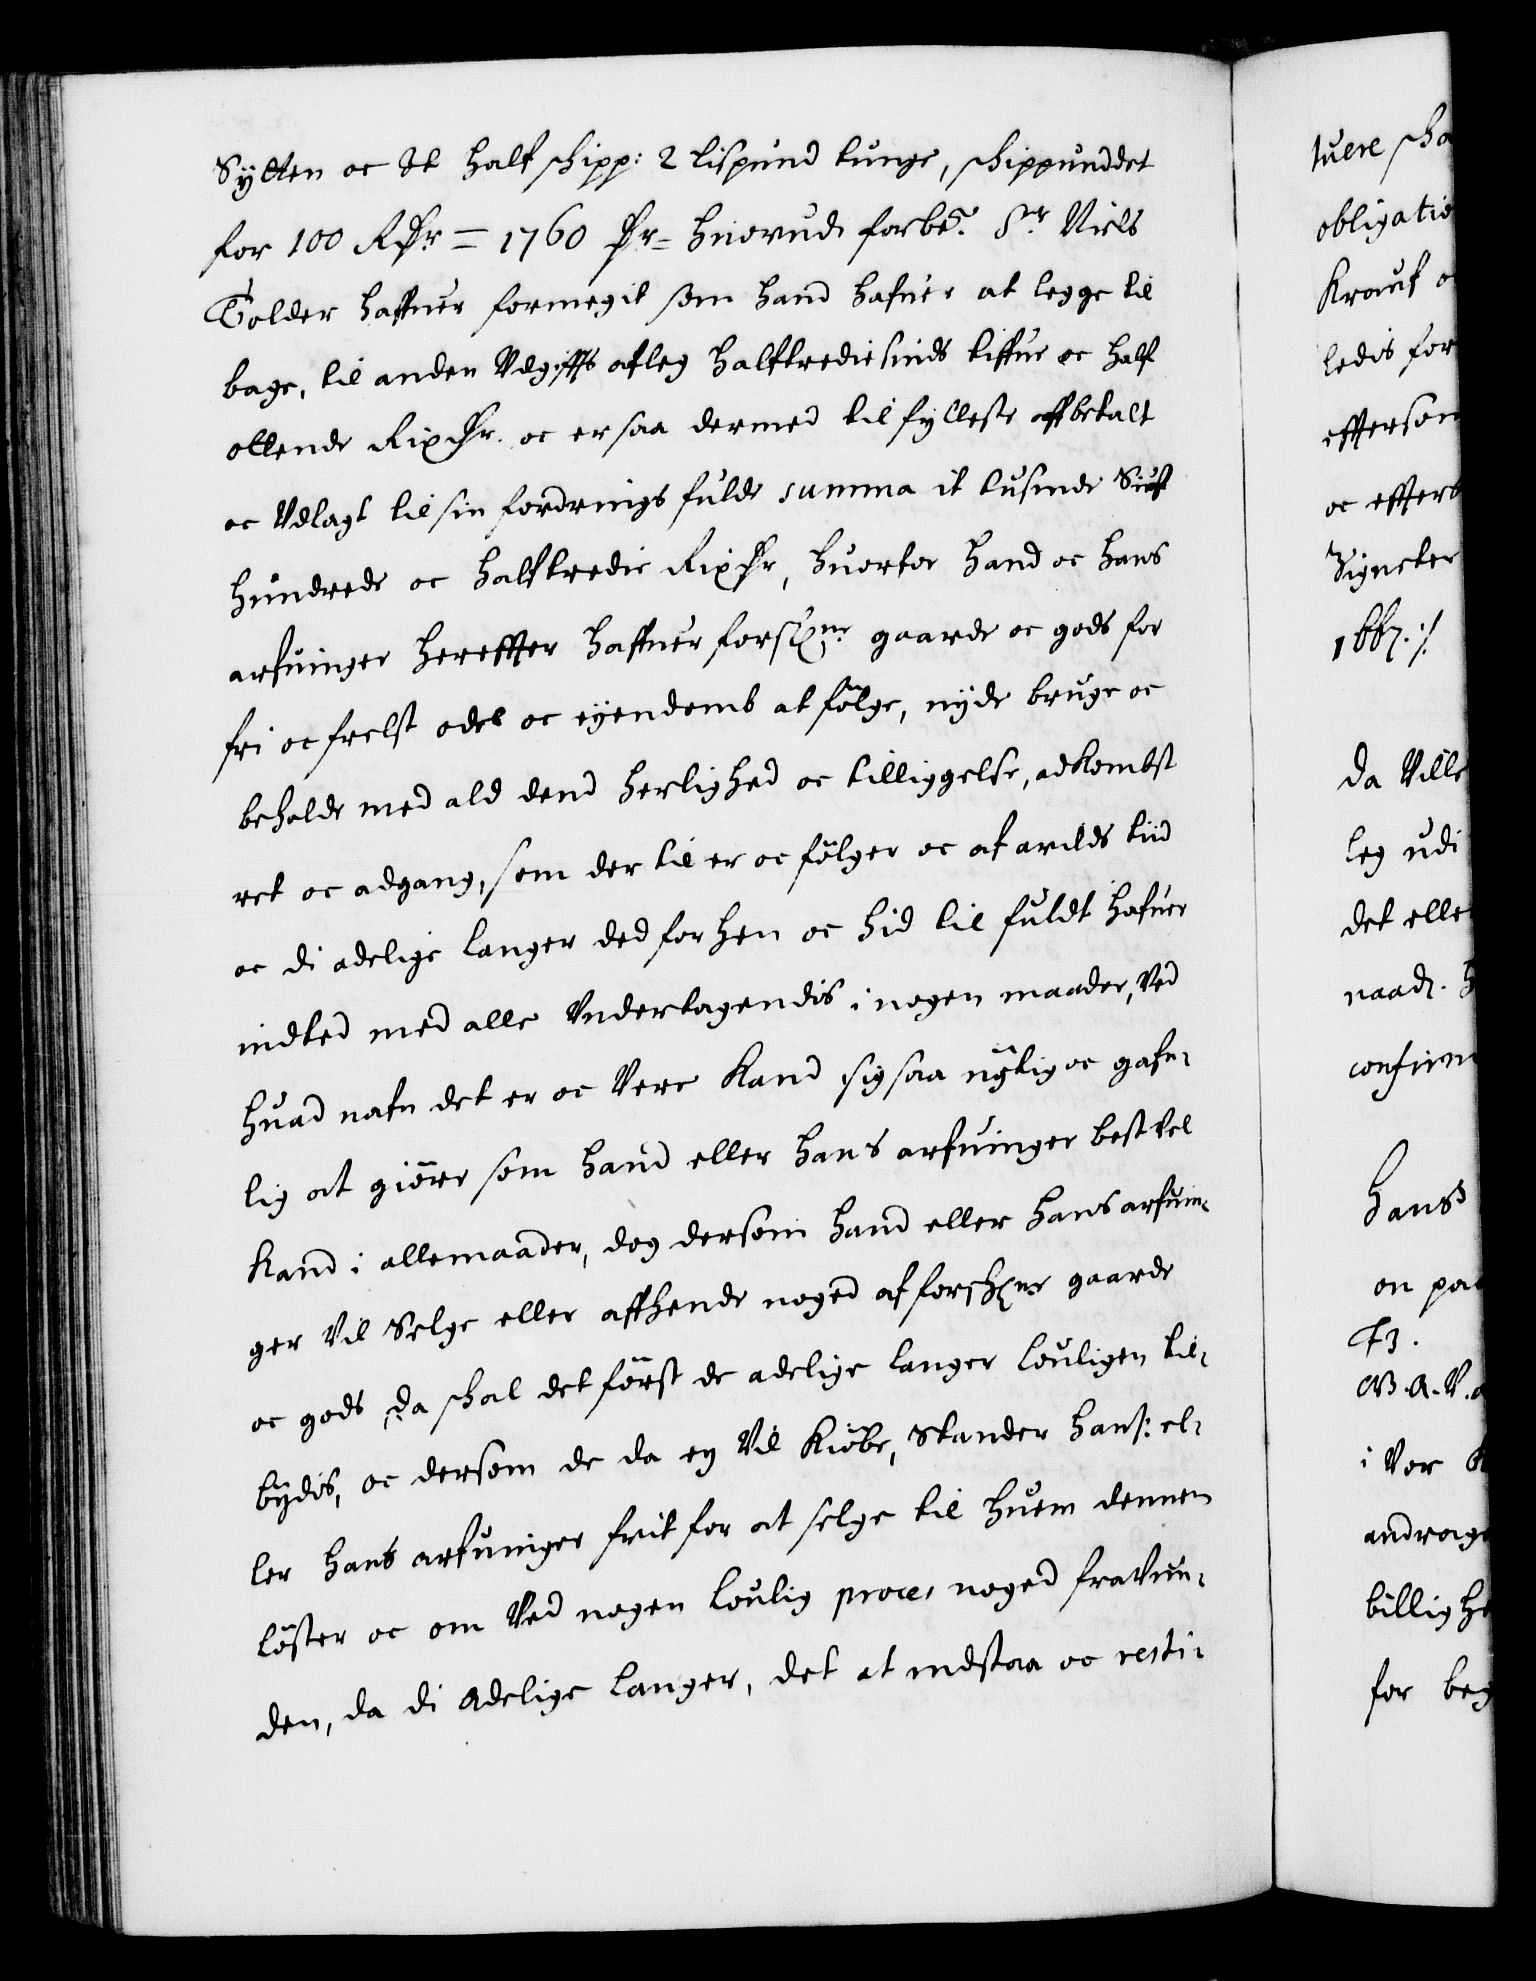 Sytten oc Et half schipp: 2 lispund tunge, schippunddet
for 100 Rdr = 1760 dr = huorudi forbte. Sr. Niels
Tolder haffuer formegit som hand hafuer at legge til
bage, til anden Udgiffts afleg halftrediesinds tiffue oc half
ottende Rixdr. oc er saa dermed til fylleste affbetalt
oc Udlagt til sin fordrings fulde summa it tusinde Siuf
hundrede oc halftredie Rixdr, huorfor hand oc hans
arfuinger hereffter haffuer forschne gaarde oc gods for
fri oc frelst odel oc eyendomb at følge, nyde bruge oc
beholde med ald dend herlighed oc tilliggelse, adkombst
ret oc adgang, som der til er oc følger oc af arilds tiid
oc di adelige langer ded for hen oc hid til fuldt hafuer
indted med alle Undertagendis i nogen maader, Ved
huad nafn det er oc Vere Kand sig saa nytig oc gafn-
lig at giøre som hand eller hans arfuinger best Vel
Kand i allemaader, dog dersom hand eller hans arfuin-
ger Vil Selge eller affhende noged af forschne gaarde
oc gods da schal det først de adelige langer louligen til-
bydis, oc dersom de da ey Vil Kiøbe, Stander hans: el-
ler hans arfuinger frit for at selge til huem dennem
løster oc om Ved nogen loulig proces noged fraVun-
den, da di Adelige langer, det at indstaa oc resti-
tuere scha
obligatio
Krauf o
ledis for
efftersom
oc effters
Signeter
1667. ./.
da Ville
leg udi
det elle
naad.
confirm
Hans
on pa
F3.
i Vor K
andrage
billighe
for beg